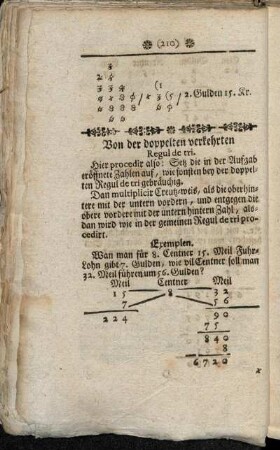 (210)
3
2 4
3 3 4 (1
9 x 8 ∮ / x 3 (5 / 2. Gulden 15. Kr.
4 8 8 8 6 ∮
6 ∮
Von der doppelten verkehrten
Regul de tri.
Hier procedir also: Setz die in der Aufgab
eröffnete Zahlen auf, wie sonsten bey der doppel-
ten Regul de tri gebräuchig.
Dan multiplicir Creutz-weis, als die ober hin-
tere mit der untern vordern, und entgegen die
obere vordere mit der untern hintern Zahl, als-
dan wird wie in der gemeinen Regul de tri pro-
cedirt.
Exemplen.
Wan man für 8. Centner 15. Meil Fuhr-
Lohn gibt 7. Gulden, wie vil Centner soll man
32. Meil führen um 56. Gulden?
Meil Centner Meil
15 8 32
7 56
224 90
75
840
8
6720